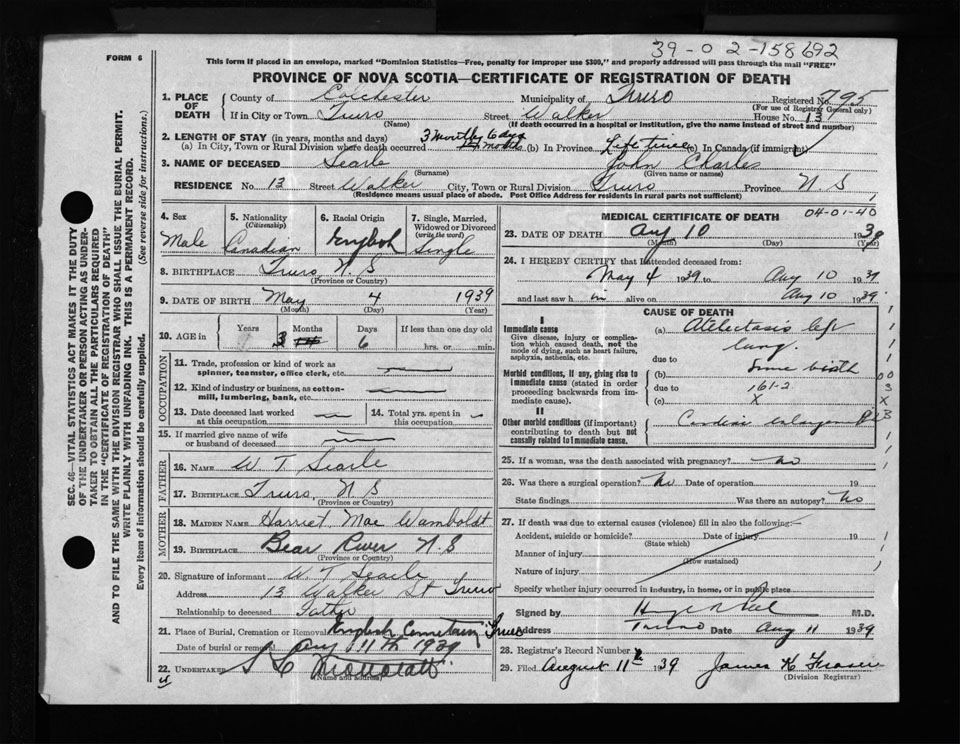 39-02-158692
FORM 6
This form if placed in an envelope, marked "Dominion Statistics—Free, penalty for improper use $300," and properly addressed will pass through the mail "FREE"
PROVINCE OF NOVA SCOTIA—CERTIFICATE OF REGISTRATION OF DEATH
1. PLACE OF DEATH County of Colchester Municipality of Truro Registered No. 795
(For use of Registrar General only)
If in City or Town Truro Street Walker House No. 13
(Name) (If death occurred in a hospital or institution, give the name instead of street and number)
2. LENGTH OF STAY (in years, months and days)
(a) In City, Town or Rural Division where death occurred 3 months 6 days (b) In Province Life time (c) In Canada (if immigrant)
3. NAME OF DECEASED Searle John Charles
(Surname) (Given name or names)
RESIDENCE No. 13 Street Walker City, Town or Rural Division Truro Province N S
(Residence means usual place of abode. Post Office Address for residents in rural parts not sufficient)
4. Sex Male
5. Nationality (Citizenship) Canadian
6. Racial Origin English
7. Single, Married, Widowed or Divorced (write the word) Single
8. BIRTHPLACE Truro, N S
(Province or Country)
9. DATE OF BIRTH May 4 1939
(Month) (Day) (Year)
10. AGE in Years Months 3 Days 6 If less than one day old hrs. or min.
OCCUPATION
11. Trade, profession or kind of work as spinner, teamster, office clerk, etc.
12. Kind of industry or business, as cotton-mill, lumbering, bank, etc.
13. Date deceased last worked at this occupation
14. Total yrs. spent in this occupation
15. If married give name of wife or husband of deceased
FATHER
16. NAME W T Searle
17. BIRTHPLACE Truro, N S
(Province or Country)
MOTHER
18. MAIDEN NAME Harriet Mae Wamboldt
19. BIRTHPLACE Bear River N S
(Province or Country)
20. Signature of informant W T Searle
Address 13 Walker St Truro
Relationship to deceased Father
21. Place of Burial, Cremation or Removal English Cemetery Truro
Date of burial or removal Aug 11th 1939
22. UNDERTAKER
(Name and address)
MEDICAL CERTIFICATE OF DEATH
04-01-40
23. DATE OF DEATH Aug 10 1939
(Month) (Day) (Year)
24. I HEREBY CERTIFY that I attended deceased from:
May 4 1939 to Aug 10 1939
and last saw h im alive on Aug 10 1939
CAUSE OF DEATH
I
Immediate cause
Give disease, injury or complication which caused death, not the mode of dying, such as heart failure, asphyxia, asthenia, etc.
(a) Atelectasis left lung.
due to
Morbid conditions, if any, giving rise to immediate cause (stated in order proceeding backwards from immediate cause).
(b) Since birth
due to 161-2
(c) X
II
Other morbid conditions (if important) contributing to death but not causally related to immediate cause.
Cardiac enlargement
25. If a woman, was the death associated with pregnancy? No
26. Was there a surgical operation? No Date of operation 19
State findings Was there an autopsy? No
27. If death was due to external causes (violence) fill in also the following:
Accident, suicide or homicide? Date of injury 19
(State which)
Manner of injury
(How sustained)
Nature of injury
Specify whether injury occurred in industry, in home, or in public place
Signed by M.D.
Address Truro Date Aug 11 1939
28. Registrar's Record Number
29. Filed August 11 1939 James K Fraser
(Division Registrar)
SEC. 46—VITAL STATISTICS ACT MAKES IT THE DUTY OF THE UNDERTAKER OR PERSON ACTING AS UNDERTAKER TO OBTAIN ALL THE PARTICULARS REQUIRED IN THE "CERTIFICATE OF REGISTRATION OF DEATH"
AND TO FILE THE SAME WITH THE DIVISION REGISTRAR WHO SHALL ISSUE THE BURIAL PERMIT.
WRITE PLAINLY WITH UNFADING INK. THIS IS A PERMANENT RECORD.
Every item of information should be carefully supplied. (See reverse side for instructions.)